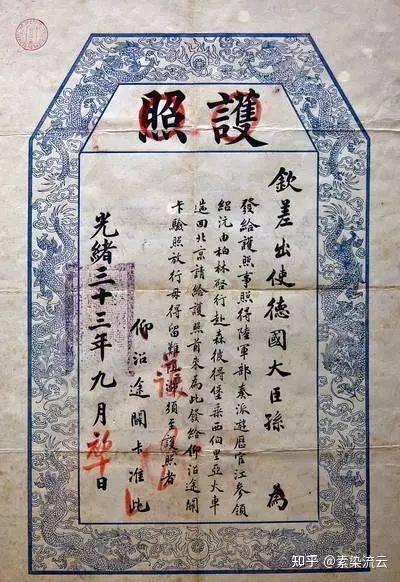 護照
欽差出使德國大臣孫 為
發給護照事照得陸軍部奏派遊歷官江參領
紹沅由柏林啓行赴森彼得堡乘西伯里亞火車
遄回北京請給護照前來為此發給仰沿途關
卡驗照放行毋得留難阻滯須至護照者
仰沿途關卡准此
光緒三十三年九月初十日
護
知乎 @索染流云